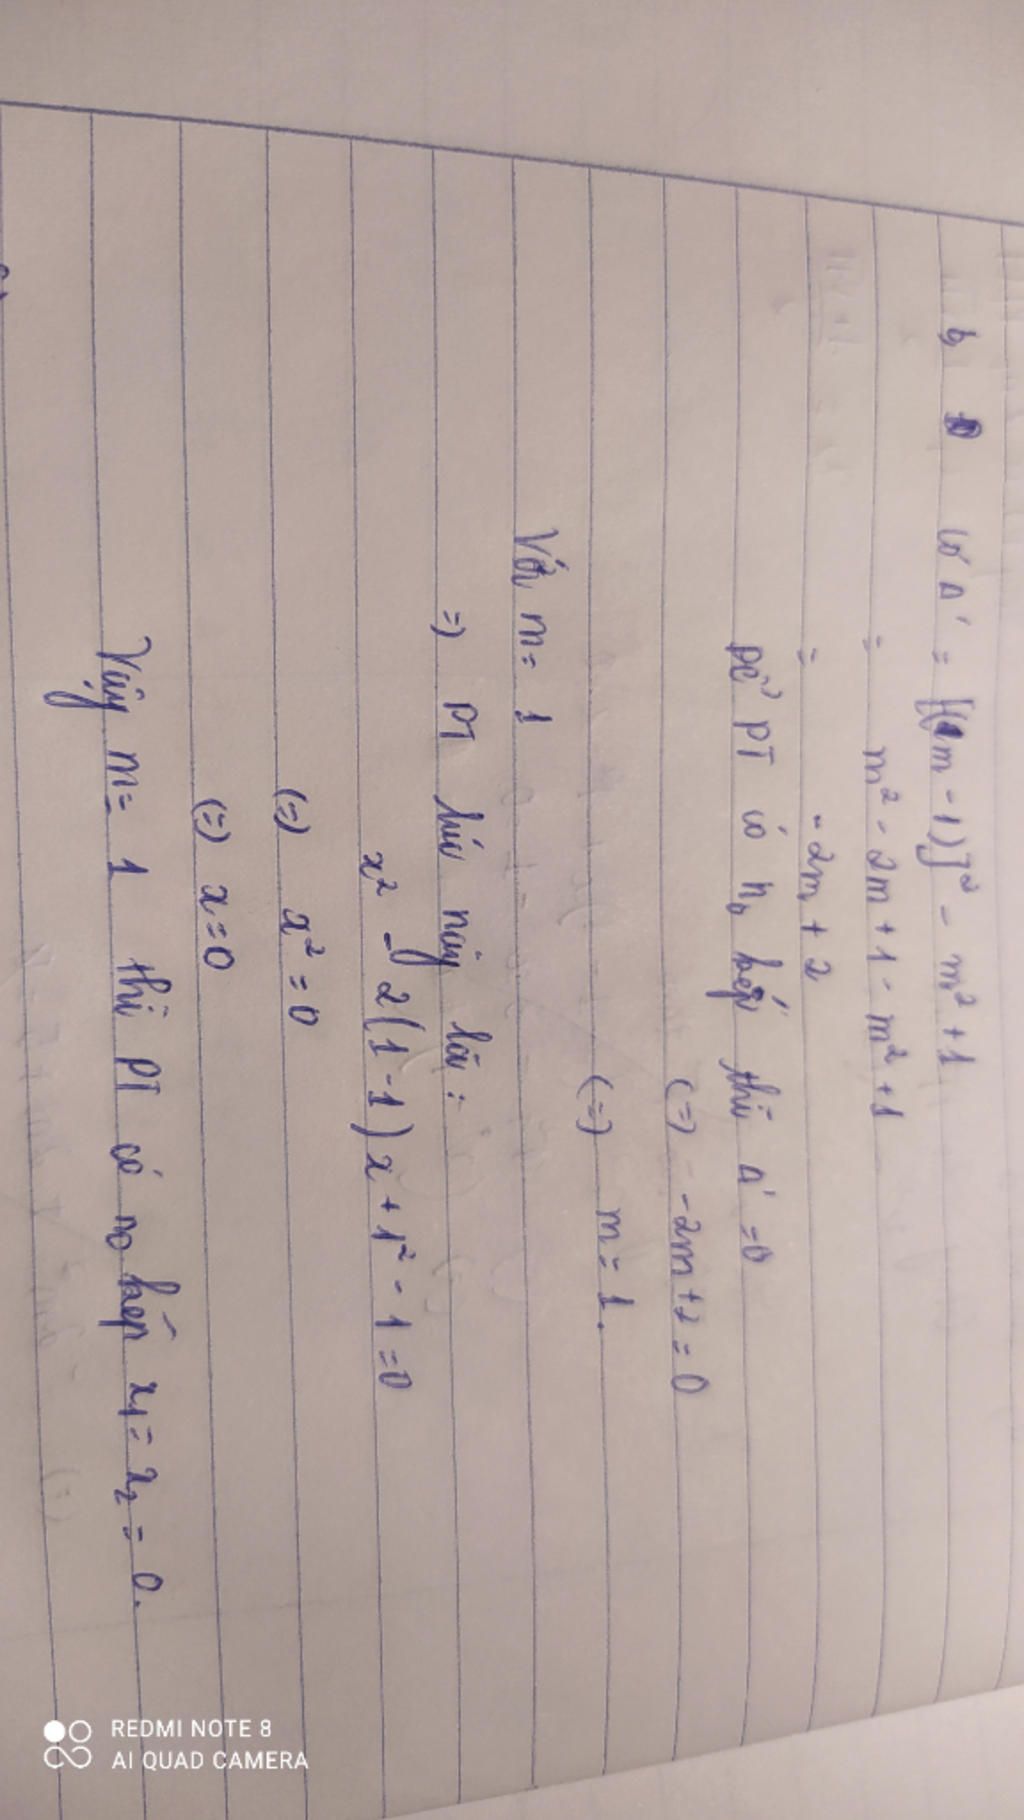 b, có Δ' = [(m - 1)]² - m² + 1
= m² - 2m + 1 - m² + 1
= - 2m + 2
Để PT có n₀ kép thì Δ' = 0
(=) -2m + 2 = 0
(=) m = 1.
Với m = 1
=) PT lúc này là :
x² - 2(1-1)x + 1² - 1 = 0
(=) x² = 0
(=) x = 0
Vậy m = 1 thì PT có n₀ kép x₁ = x₂ = 0.
REDMI NOTE 8
AI QUAD CAMERA